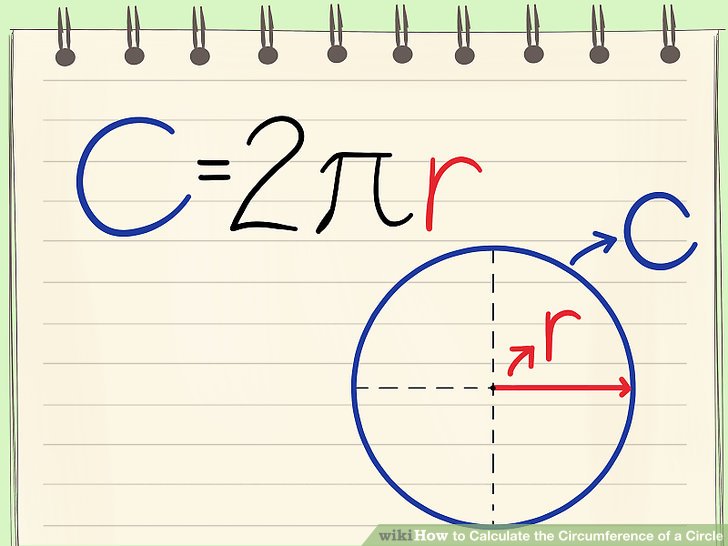 C=2πr
C
r
wikiHow to Calculate the Circumference of a Circle